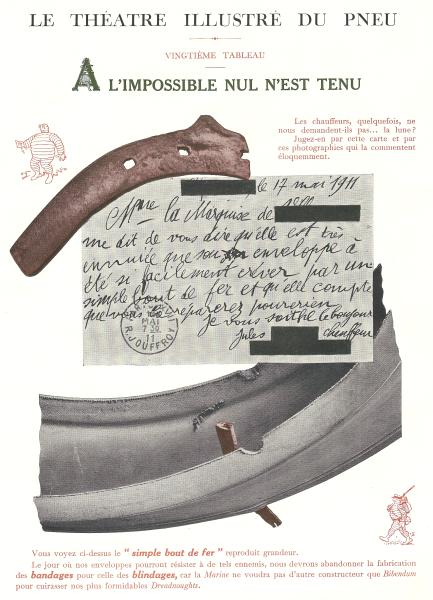 LE THÉATRE ILLUSTRÉ DU PNEU
VINGTIÈME TABLEAU
A L'IMPOSSIBLE NUL N'EST TENU
Les chauffeurs, quelquefois, ne
nous demandent-ils pas... la lune?
Jugez-en par cette carte et par
ces photographies qui la commentent
éloquemment.
le 17 mai 1911
Mme la Marquise de
me dit de vous dire qu'elle est très
ennuiée que son enveloppe à
été si facilement crever par un
simple bout de fer et qu'elle compte
que vous réparerez pour rien
Je vous souhaite le bonjour
Jules
chauffeur
MAI
11
R. JOUFFROY
Vous voyez ci-dessus le "simple bout de fer" reproduit grandeur.
Le jour où nos enveloppes pourront résister à de tels ennemis, nous devrons abandonner la fabrication
des bandages pour celle des blindages, car la Marine ne voudra pas d'autre constructeur que Bibendum
pour cuirasser nos plus formidables Dreadnoughts.